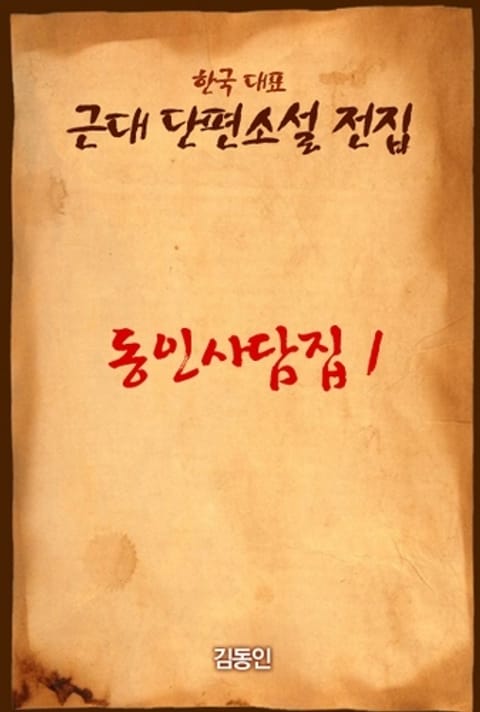 한국 대표
근대 단편소설 전집
동인사담집 1
김동인